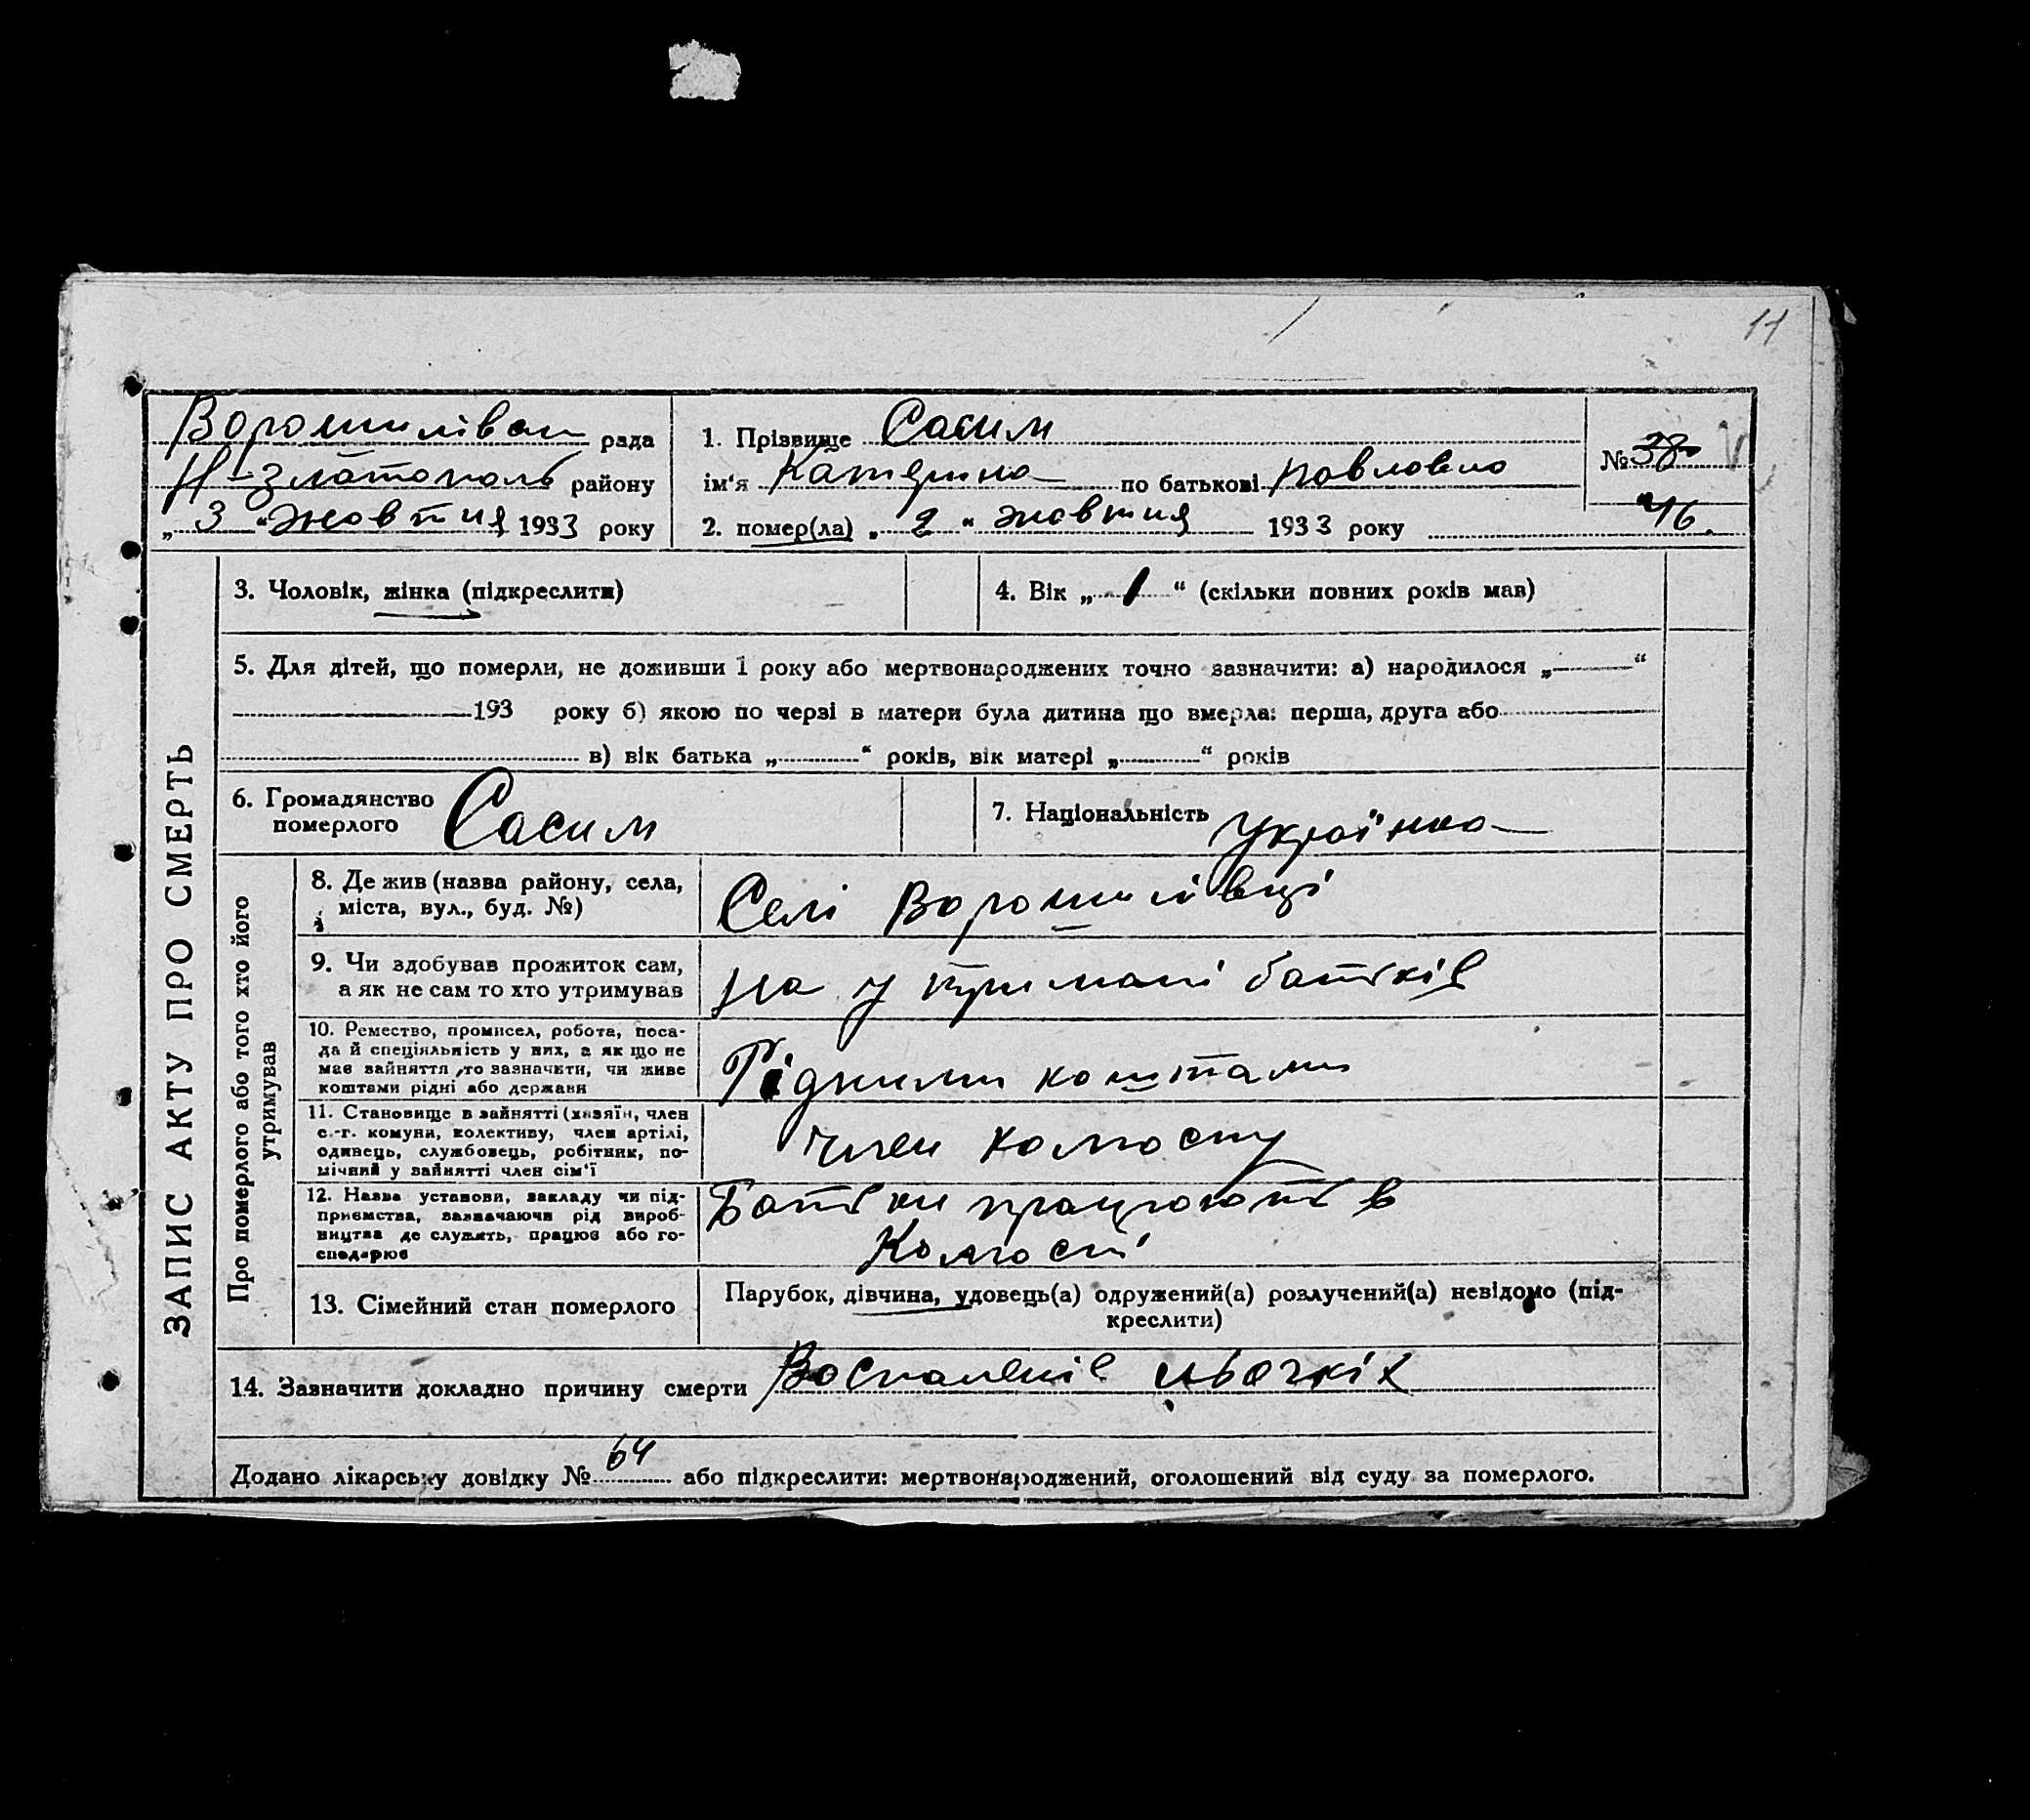 11
Ворошилівси рада
Н-Златополь району
„ 3 “ жовтня 1933 року
1. Прізвище Сасим
ім'я Катерина по батькові Павловна
2. помер(ла) „ 2 “ жовтня 1933 року
№ 38
46.
ЗАПИС АКТУ ПРО СМЕРТЬ
3. Чоловік, жінка (підкреслити)
4. Вік „ 1 “ (скільки повних років мав)
5. Для дітей, що померли, не доживши 1 року або мертвонароджених точно зазначити: а) народилося „ “
193 року б) якою по черзі в матери була дитина що вмерла: перша, друга або
в) вік батька „ “ років, вік матері „ “ років
6. Громадянство
померлого Сасим
7. Національність Українка
Про померлого або того хто його
утримував
8. Де жив (назва району, села,
міста, вул., буд. №)
Селі Ворошилівці
9. Чи здобував прожиток сам,
а як не сам то хто утримував
На утримані батьків
10. Ремество, промисел, робота, поса-
да й спеціяльність у них, а як що не
має зайняття, то зазначити, чи живе
коштами рідні або держави
Рідними коштами
11. Становище в зайнятті (хазяїн, член
с.-г. комуни, колективу, член артілі,
одинець, службовець, робітник, по-
мічний у зайнятті член сім'ї
член колгоспу
12. Назва установи, закладу чи під-
приємства, зазначаючи рід вироб-
ництва де служить, працює або го-
сподарює
Батьки працюють в
Колгоспі
13. Сімейний стан померлого
Парубок, дівчина, удовець(а) одружений(а) розлучений(а) невідомо (під-
креслити)
14. Зазначити докладно причину смерти Воспаленіе
Додано лікарську довідку № 64 або підкреслити: мертвонароджений, оголошений від суду за померлого.